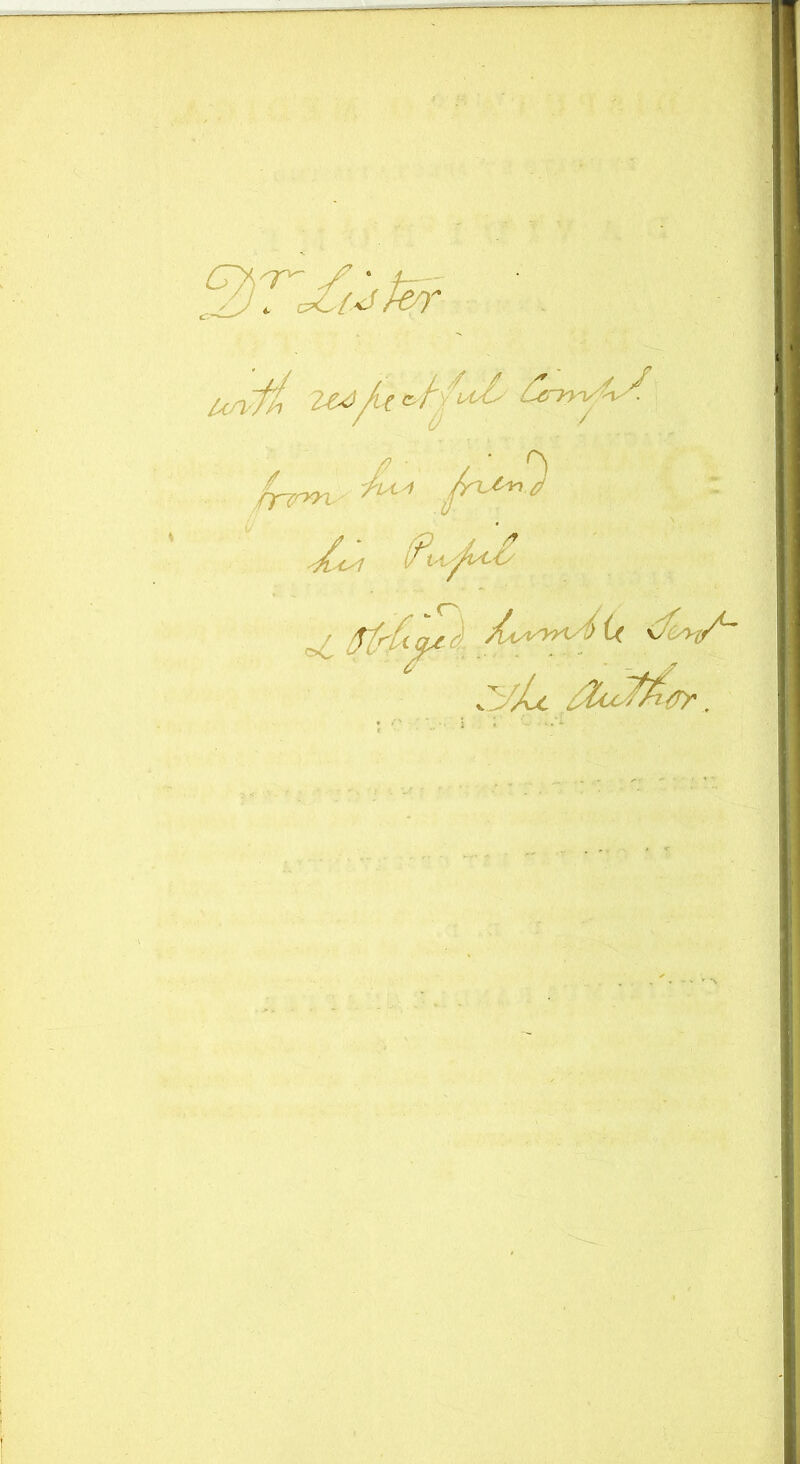 Dr. Lister
with respectful Compts.
from his friend
his Pupil
& Obliged humble Servt
The Author.